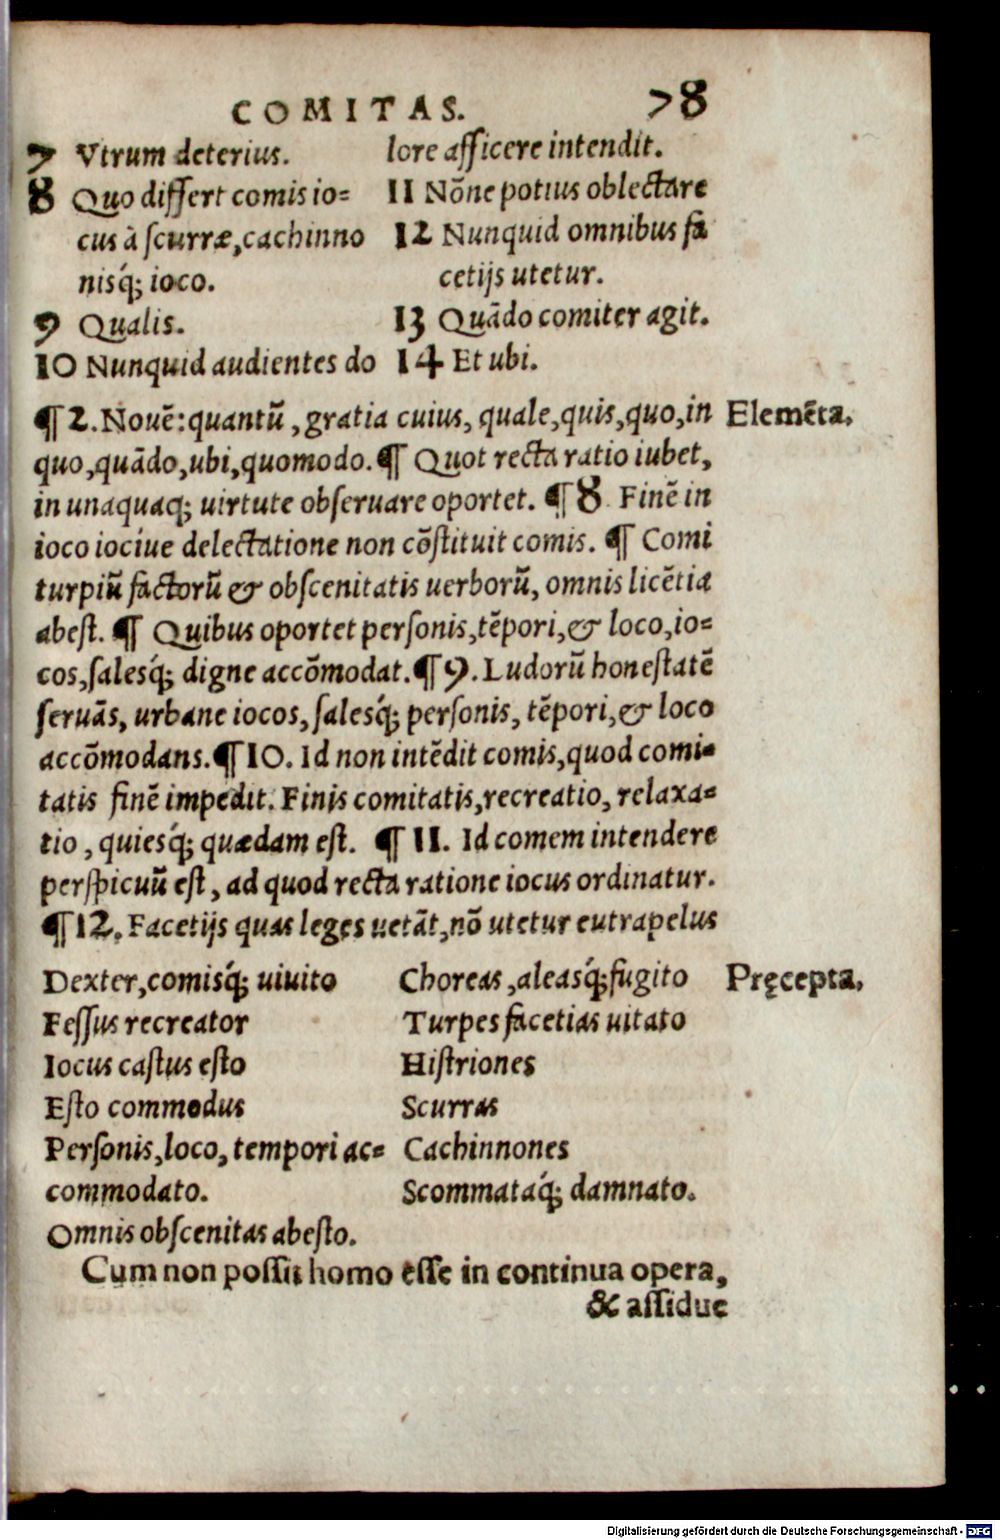 COMITAS. 78
7 Vtrum deterius.
8 Quo differt comis io=
cus à scurræ, cachinno
nisq́; ioco.
9 Qualis.
10 Nunquid audientes do
lore afficere intendit.
11 Nõne potius oblectare
12 Nunquid omnibus fa
cetijs utetur.
13 Quãdo comiter agit.
14 Et ubi.
¶ 2. Nouẽ: quantũ, gratia cuius, quale, quis, quo, in
Elemẽta.
quo, quãdo, ubi, quomodo. ¶ Quot recta ratio iubet,
in unaquaq; uirtute obseruare oportet. ¶ 8 Finẽ in
ioco iociue delectatione non cõstituit comis. ¶ Comi
turpiũ factorũ & obscenitatis uerborũ, omnis licẽtia
abest. ¶ Quibus oportet personis, tẽpori, & loco, io=
cos, salesq́; digne accõmodat. ¶ 9. Ludorũ honestatẽ
seruãs, urbane iocos, salesq́; personis, tẽpori, & loco
accõmodans. ¶ 10. Id non intẽdit comis, quod comi=
tatis finẽ impedit. Finis comitatis, recreatio, relaxa=
tio, quiesq́; quædam est. ¶ 11. Id comem intendere
perspicuũ est, ad quod recta ratione iocus ordinatur.
¶ 12. Facetijs quas leges uetãt, nõ utetur eutrapelus
Dexter, comisq́; uiuito
Fessus recreator
Iocus castus esto
Esto commodus
Personis, loco, tempori ac=
commodato.
Omnis obscenitas abesto.
Choreas, aleasq́; fugito
Turpes facetias uitato
Histriones
Scurras
Cachinnones
Scommataq́; damnato.
Pręcepta.
Cum non possit homo esse in continua opera,
& assidue
Digitalisierung gefördert durch die Deutsche Forschungsgemeinschaft - DFG